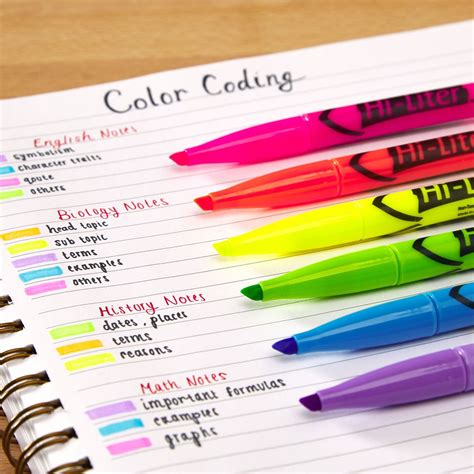 Color Coding
English Notes
symbolism
character traits
qoute
others
Biology Notes
head topic
sub topic
terms
examples
others
History Notes
dates, places
terms
reasons
Math Notes
important formulas
examples
graphs
Hi-Liter
Hi-Liter
Hi-Li